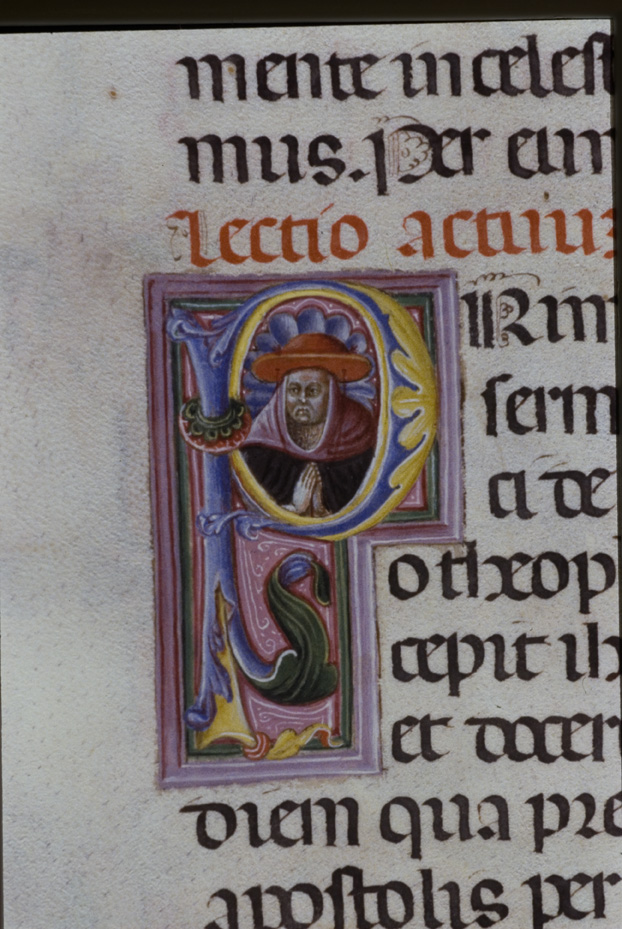 mente in celest
mus. Per eun
Lectio actuu
PRim
serm
ci de
o theop
cepit ih
et docer
diem qua pre
apostolis per